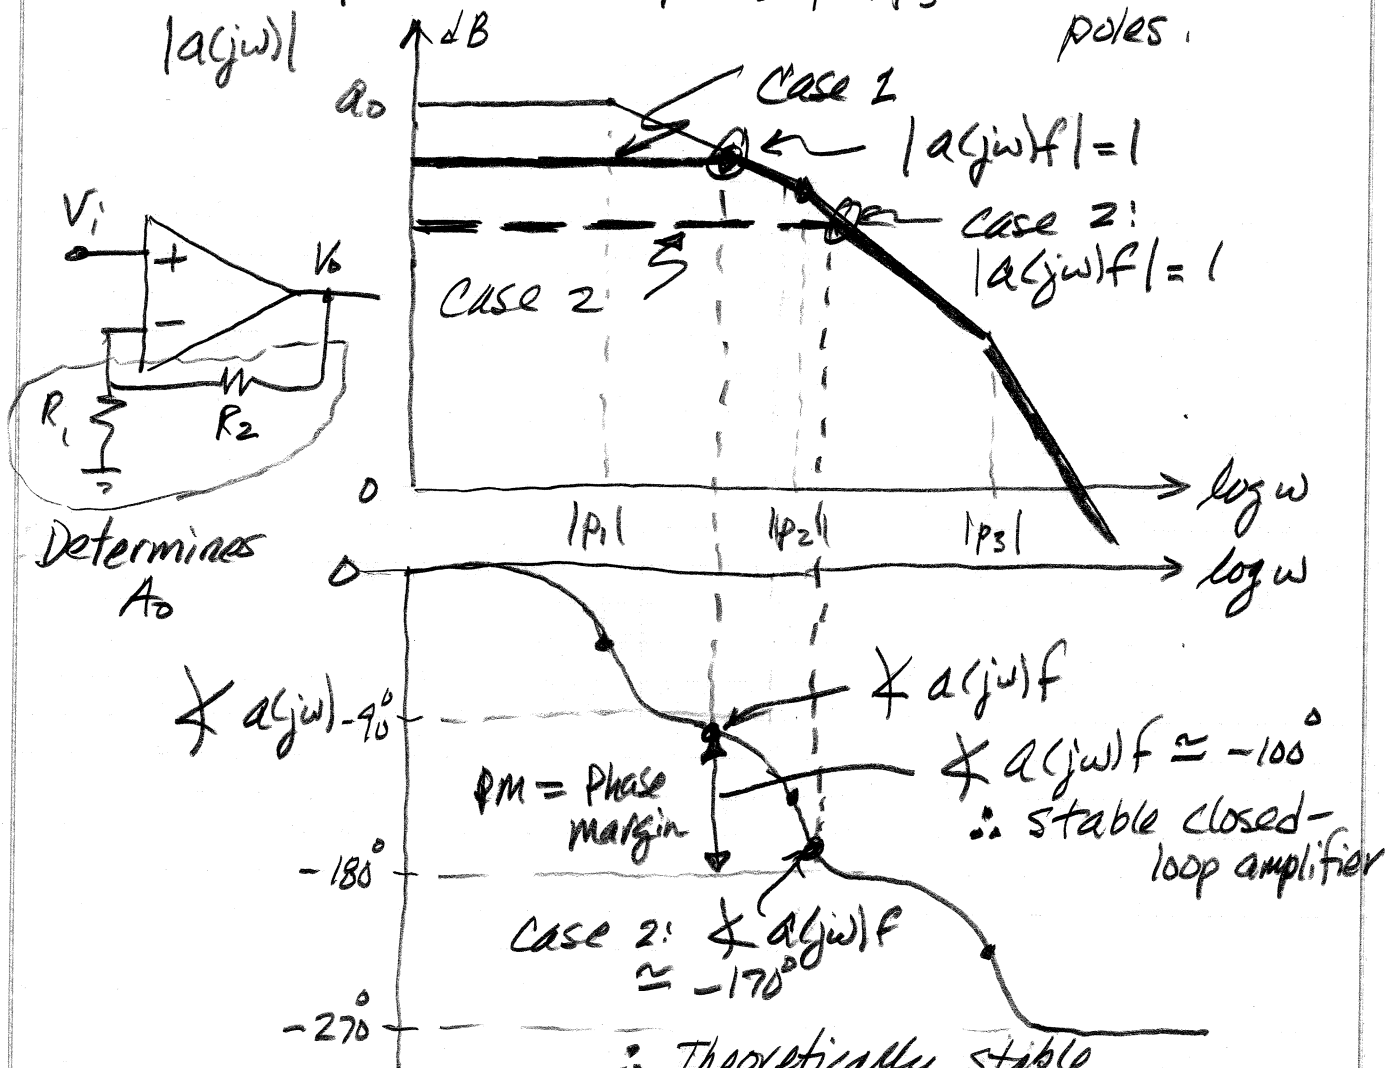 poles.
|a(jω)|
dB
a₀
Case 1
|a(jω)f| = 1
Case 2:
|a(jω)f| = 1
Case 2
Vi
+
−
Vo
R₁
R₂
Determines
A₀
0
|p₁|
|p₂|
|p₃|
log ω
0
log ω
∢ a(jω)
-90°
∢ a(jω)f
∢ a(jω)f ≃ -100°
∴ stable closed-
loop amplifier
PM = Phase
margin
-180°
Case 2: ∢ a(jω)f
≃ -170°
-270°
∴ Theoretically stable